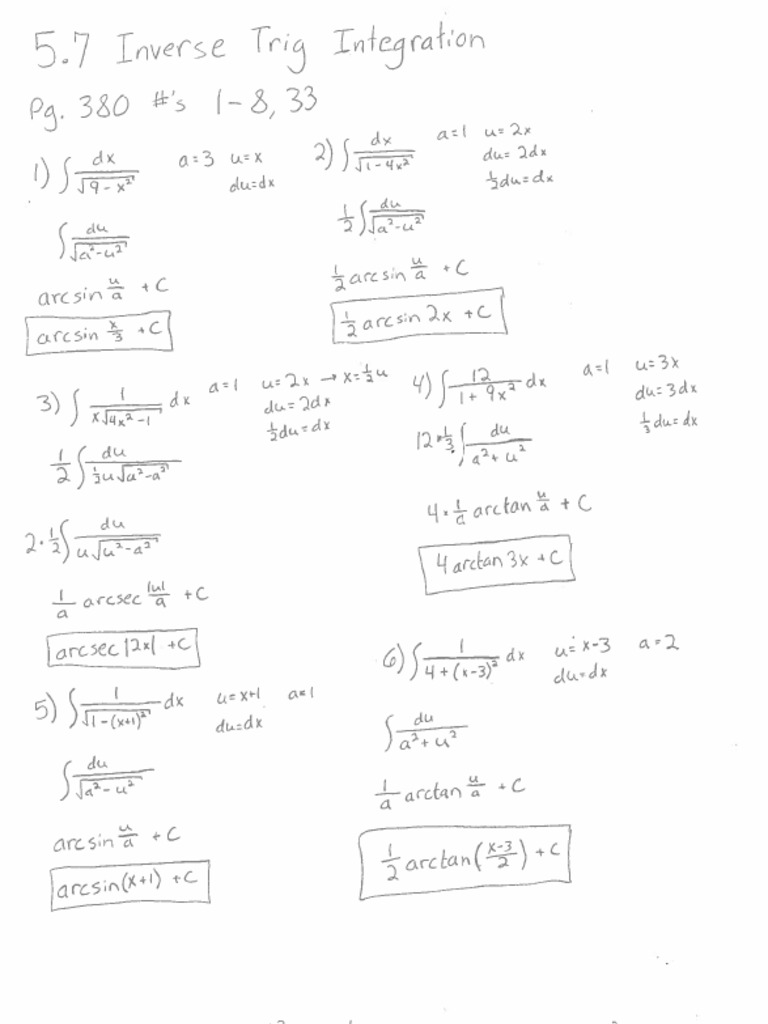 5.7 Inverse Trig Integration
Pg. 380 #'s 1-8, 33
1) ∫ dx/√(9-x²) a=3 u=x
du=dx
∫ du/√(a²-u²)
arcsin u/a + C
arcsin x/3 + C
2) ∫ dx/√(1-4x²) a=1 u=2x
du=2dx
½du=dx
1/2 ∫ du/√(a²-u²)
½ arcsin u/a + C
½ arcsin 2x + C
3) ∫ 1/(x√(4x²-1)) dx a=1 u=2x → x=½u
du=2dx
½du=dx
1/2 ∫ du/(½u√(u²-a²))
2·½ ∫ du/(u√(u²-a²))
1/a arcsec |u|/a + C
arcsec |2x| + C
4) ∫ 12/(1+9x²) dx a=1 u=3x
du=3dx
⅓du=dx
12·⅓ ∫ du/(a²+u²)
4·1/a arctan u/a + C
4 arctan 3x + C
5) ∫ 1/√(1-(x+1)²) dx u=x+1 a=1
du=dx
∫ du/√(a²-u²)
arcsin u/a + C
arcsin(x+1) + C
6) ∫ 1/(4+(x-3)²) dx u=x-3 a=2
du=dx
∫ du/(a²+u²)
1/a arctan u/a + C
1/2 arctan((x-3)/2) + C